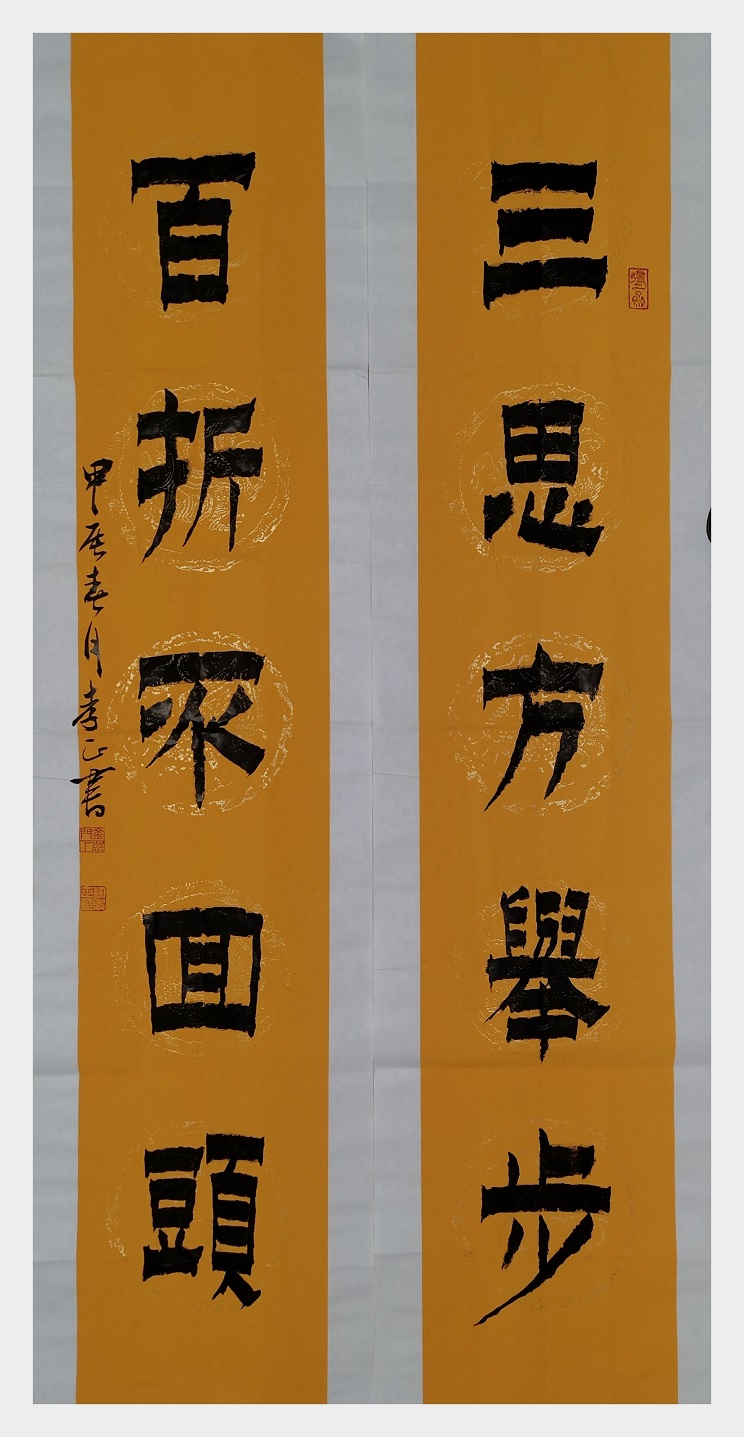 三思方舉步
百折不回頭
甲辰春月孝正書